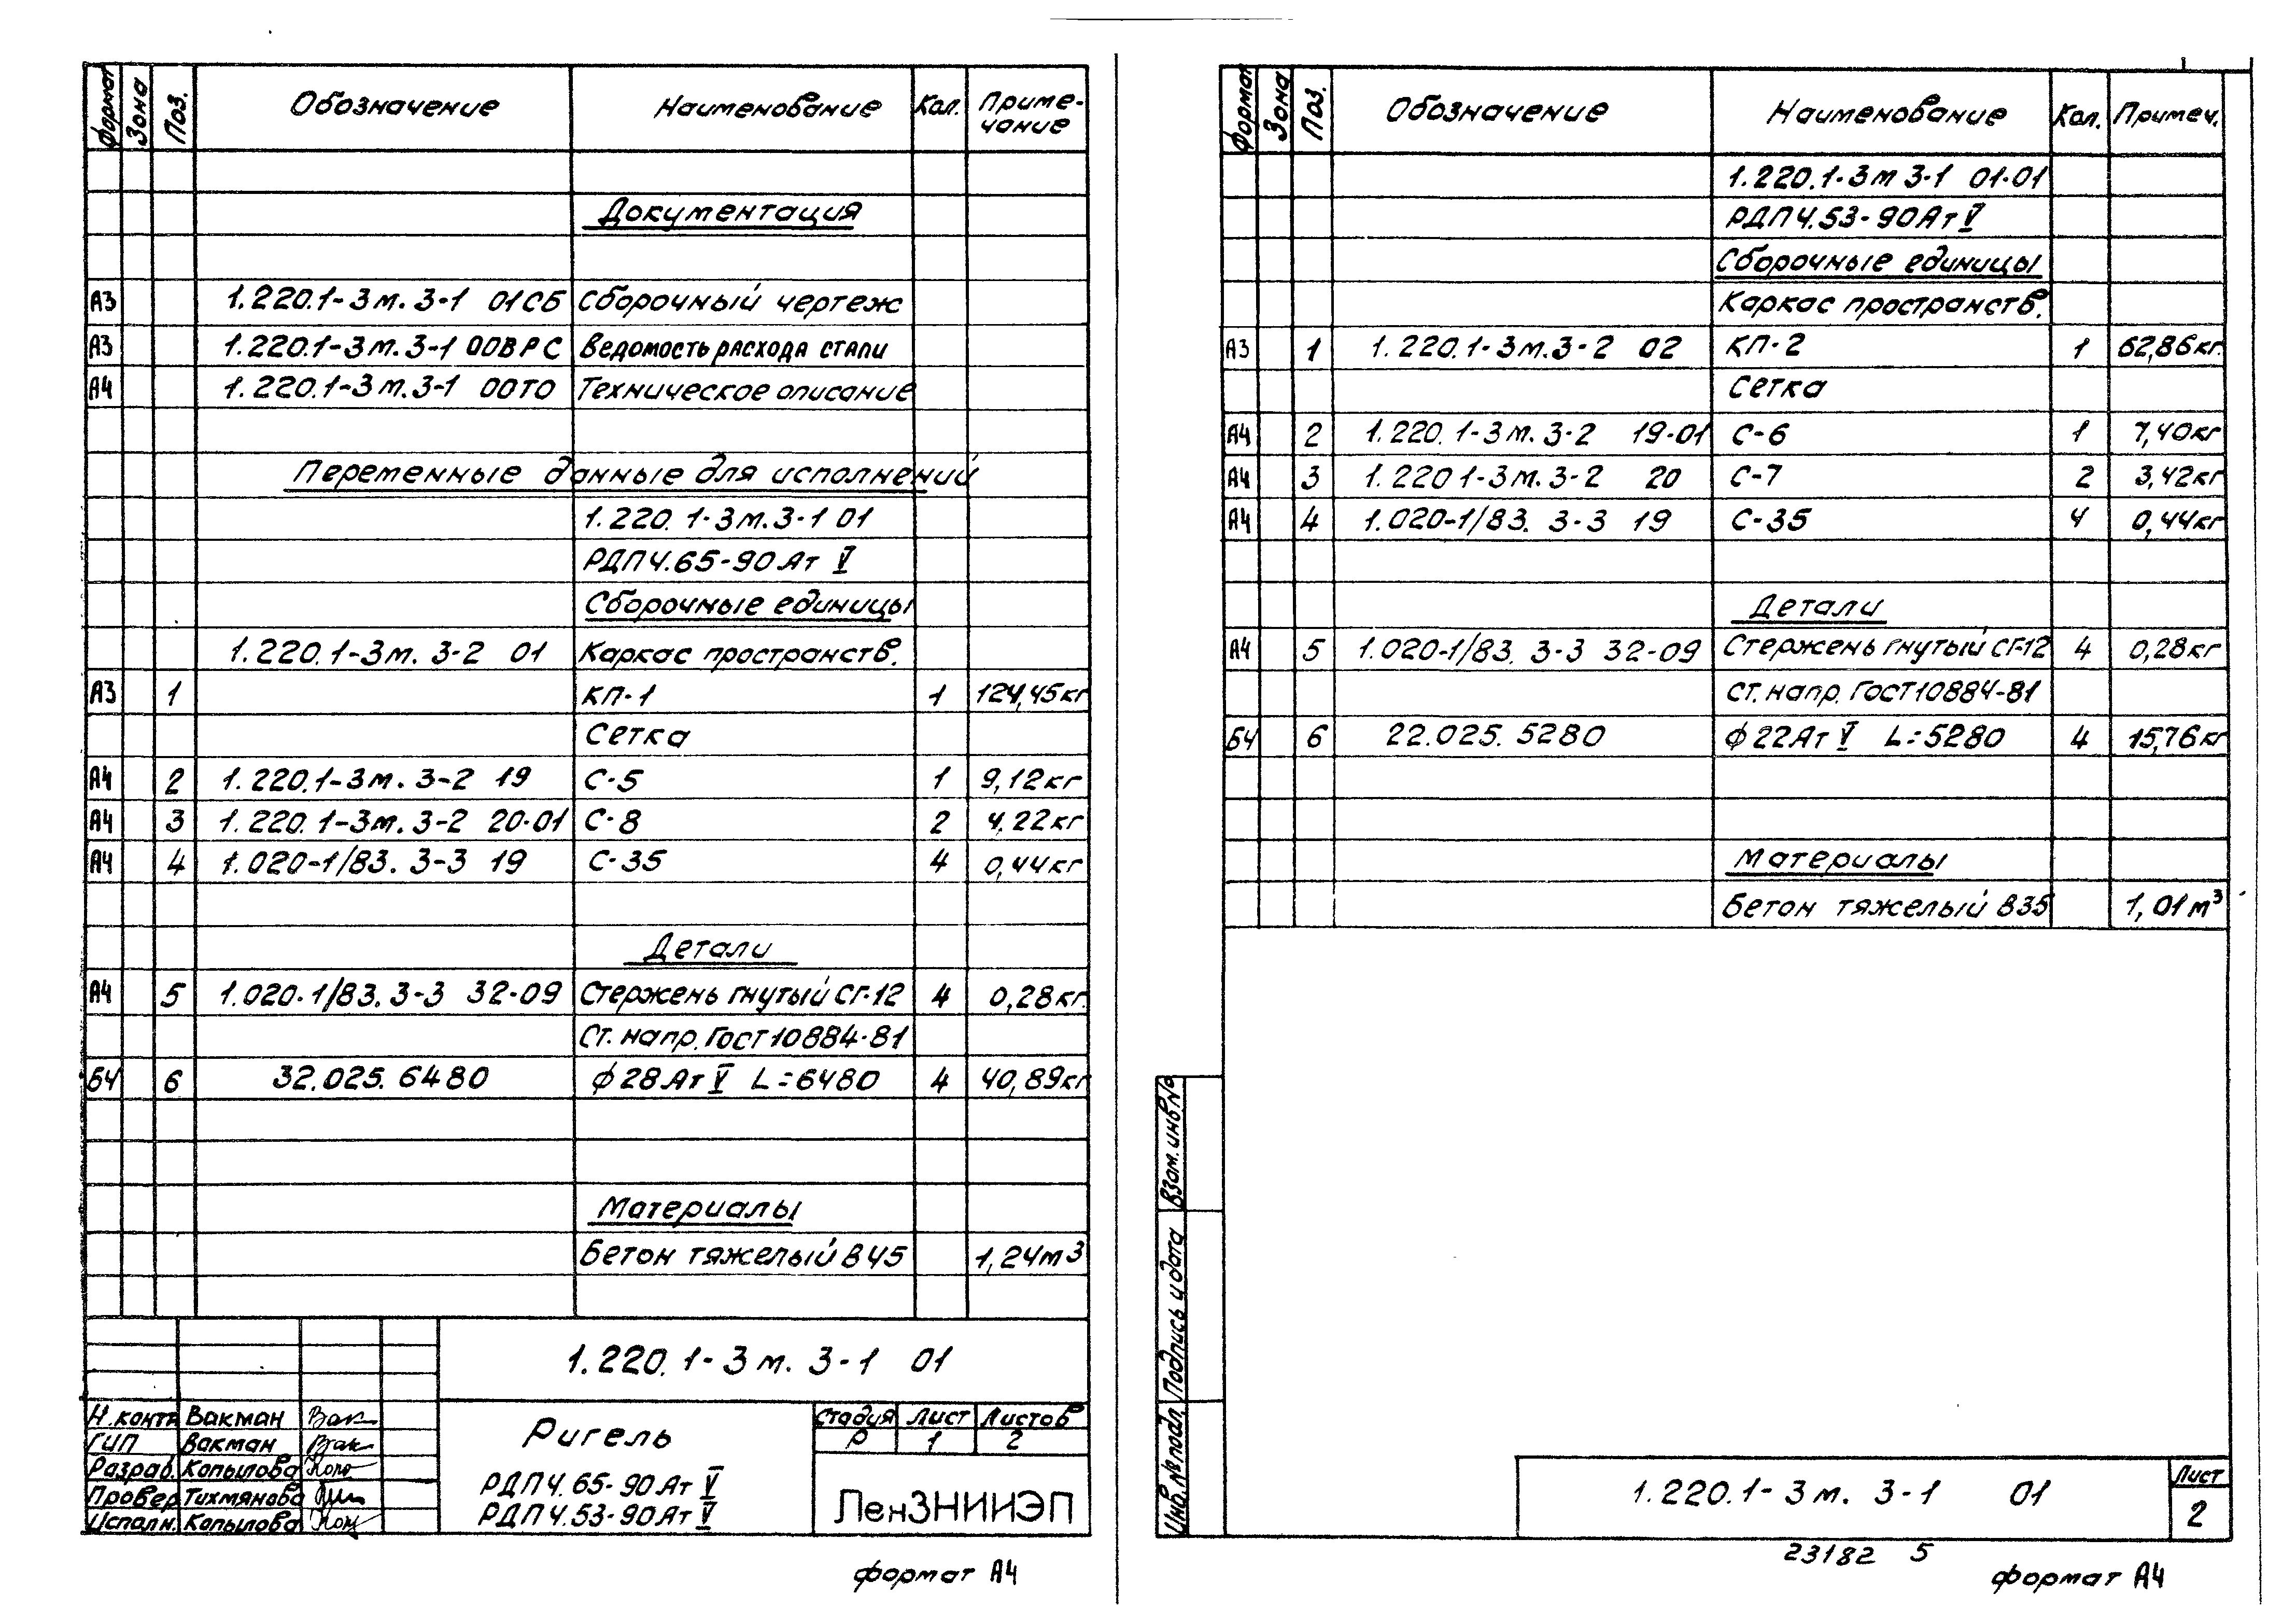 Формат Зона Поз. Обозначение Наименование Кол. Приме-
чание
Документация
А3 1.220.1-3м.3-1 01СБ Сборочный чертеж
А3 1.220.1-3м.3-1 00ВРС Ведомость расхода стали
А4 1.220.1-3м.3-1 00ТО Техническое описание
Переменные данные для исполнений
1.220.1-3м.3-1 01
РДП4.65-90Ат V
Сборочные единицы
1.220.1-3м.3-2 01 Каркас пространств.
А3 1 КП-1 1 124,45кг
Сетка
А4 2 1.220.1-3м.3-2 19 С-5 1 9,12кг
А4 3 1.220.1-3м.3-2 20-01 С-8 2 4,22кг
А4 4 1.020-1/83. 3-3 19 С-35 4 0,44кг
Детали
А4 5 1.020-1/83. 3-3 32-09 Стержень гнутый СГ-12 4 0,28кг.
Ст. напр. ГОСТ 10884-81
Б4 6 32.025.6480 ф28Ат V L=6480 4 40,89кг
Материалы
Бетон тяжелый В45 1,24м³
1.220.1-3м.3-1 01
Н.контр Вакман
ГИП Вакман
Разраб. Копылова
Провер Тихмянова
Исполн. Копылова
Ригель
РДП4.65-90Ат V
РДП4.53-90Ат V
Стадия Лист Листов
Р 1 2
ЛенЗНИИЭП
формат А4
Формат Зона Поз. Обозначение Наименование Кол. Примеч.
1.220.1-3м 3-1 01-01
РДП4.53-90Ат V
Сборочные единицы
Каркас пространств.
А3 1 1.220.1-3м.3-2 02 КП-2 1 62,86кг.
Сетка
А4 2 1.220.1-3м.3-2 19-01 С-6 1 7,40кг
А4 3 1.220 1-3м.3-2 20 С-7 2 3,42кг
А4 4 1.020-1/83. 3-3 19 С-35 4 0,44кг
Детали
А4 5 1.020-1/83. 3-3 32-09 Стержень гнутый СГ-12 4 0,28кг
ст. напр. ГОСТ 10884-81
Б4 6 22.025.5280 ф22Ат V L=5280 4 15,76кг
Материалы
Бетон тяжелый В35 1,01м³
Взам. инв№
Подпись и дата
Инв.№ подл.
1.220.1-3м. 3-1 01
Лист
2
23182 5
формат А4